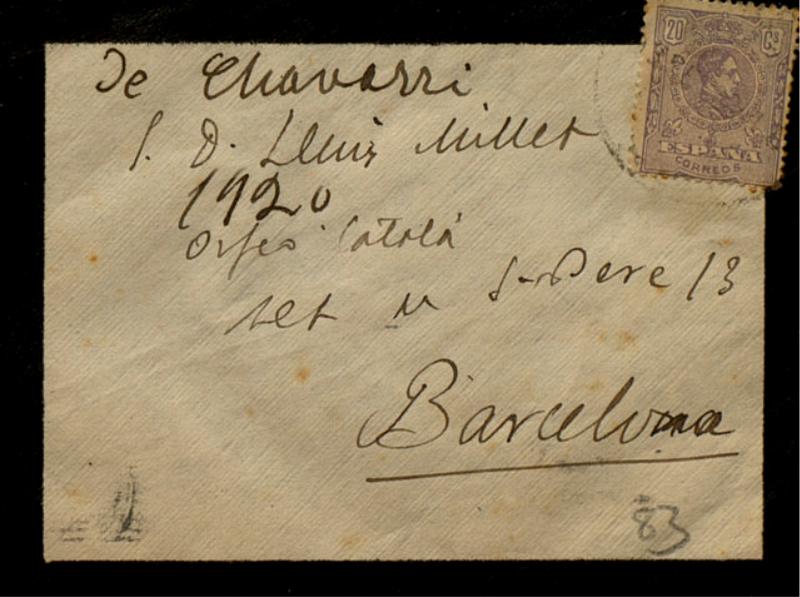 20 Cs
ESPAÑA
CORREOS
De Chavarri
S. D. Lluis Millet
1920
Orfeó Català
St Pere 13
Barcelona
83